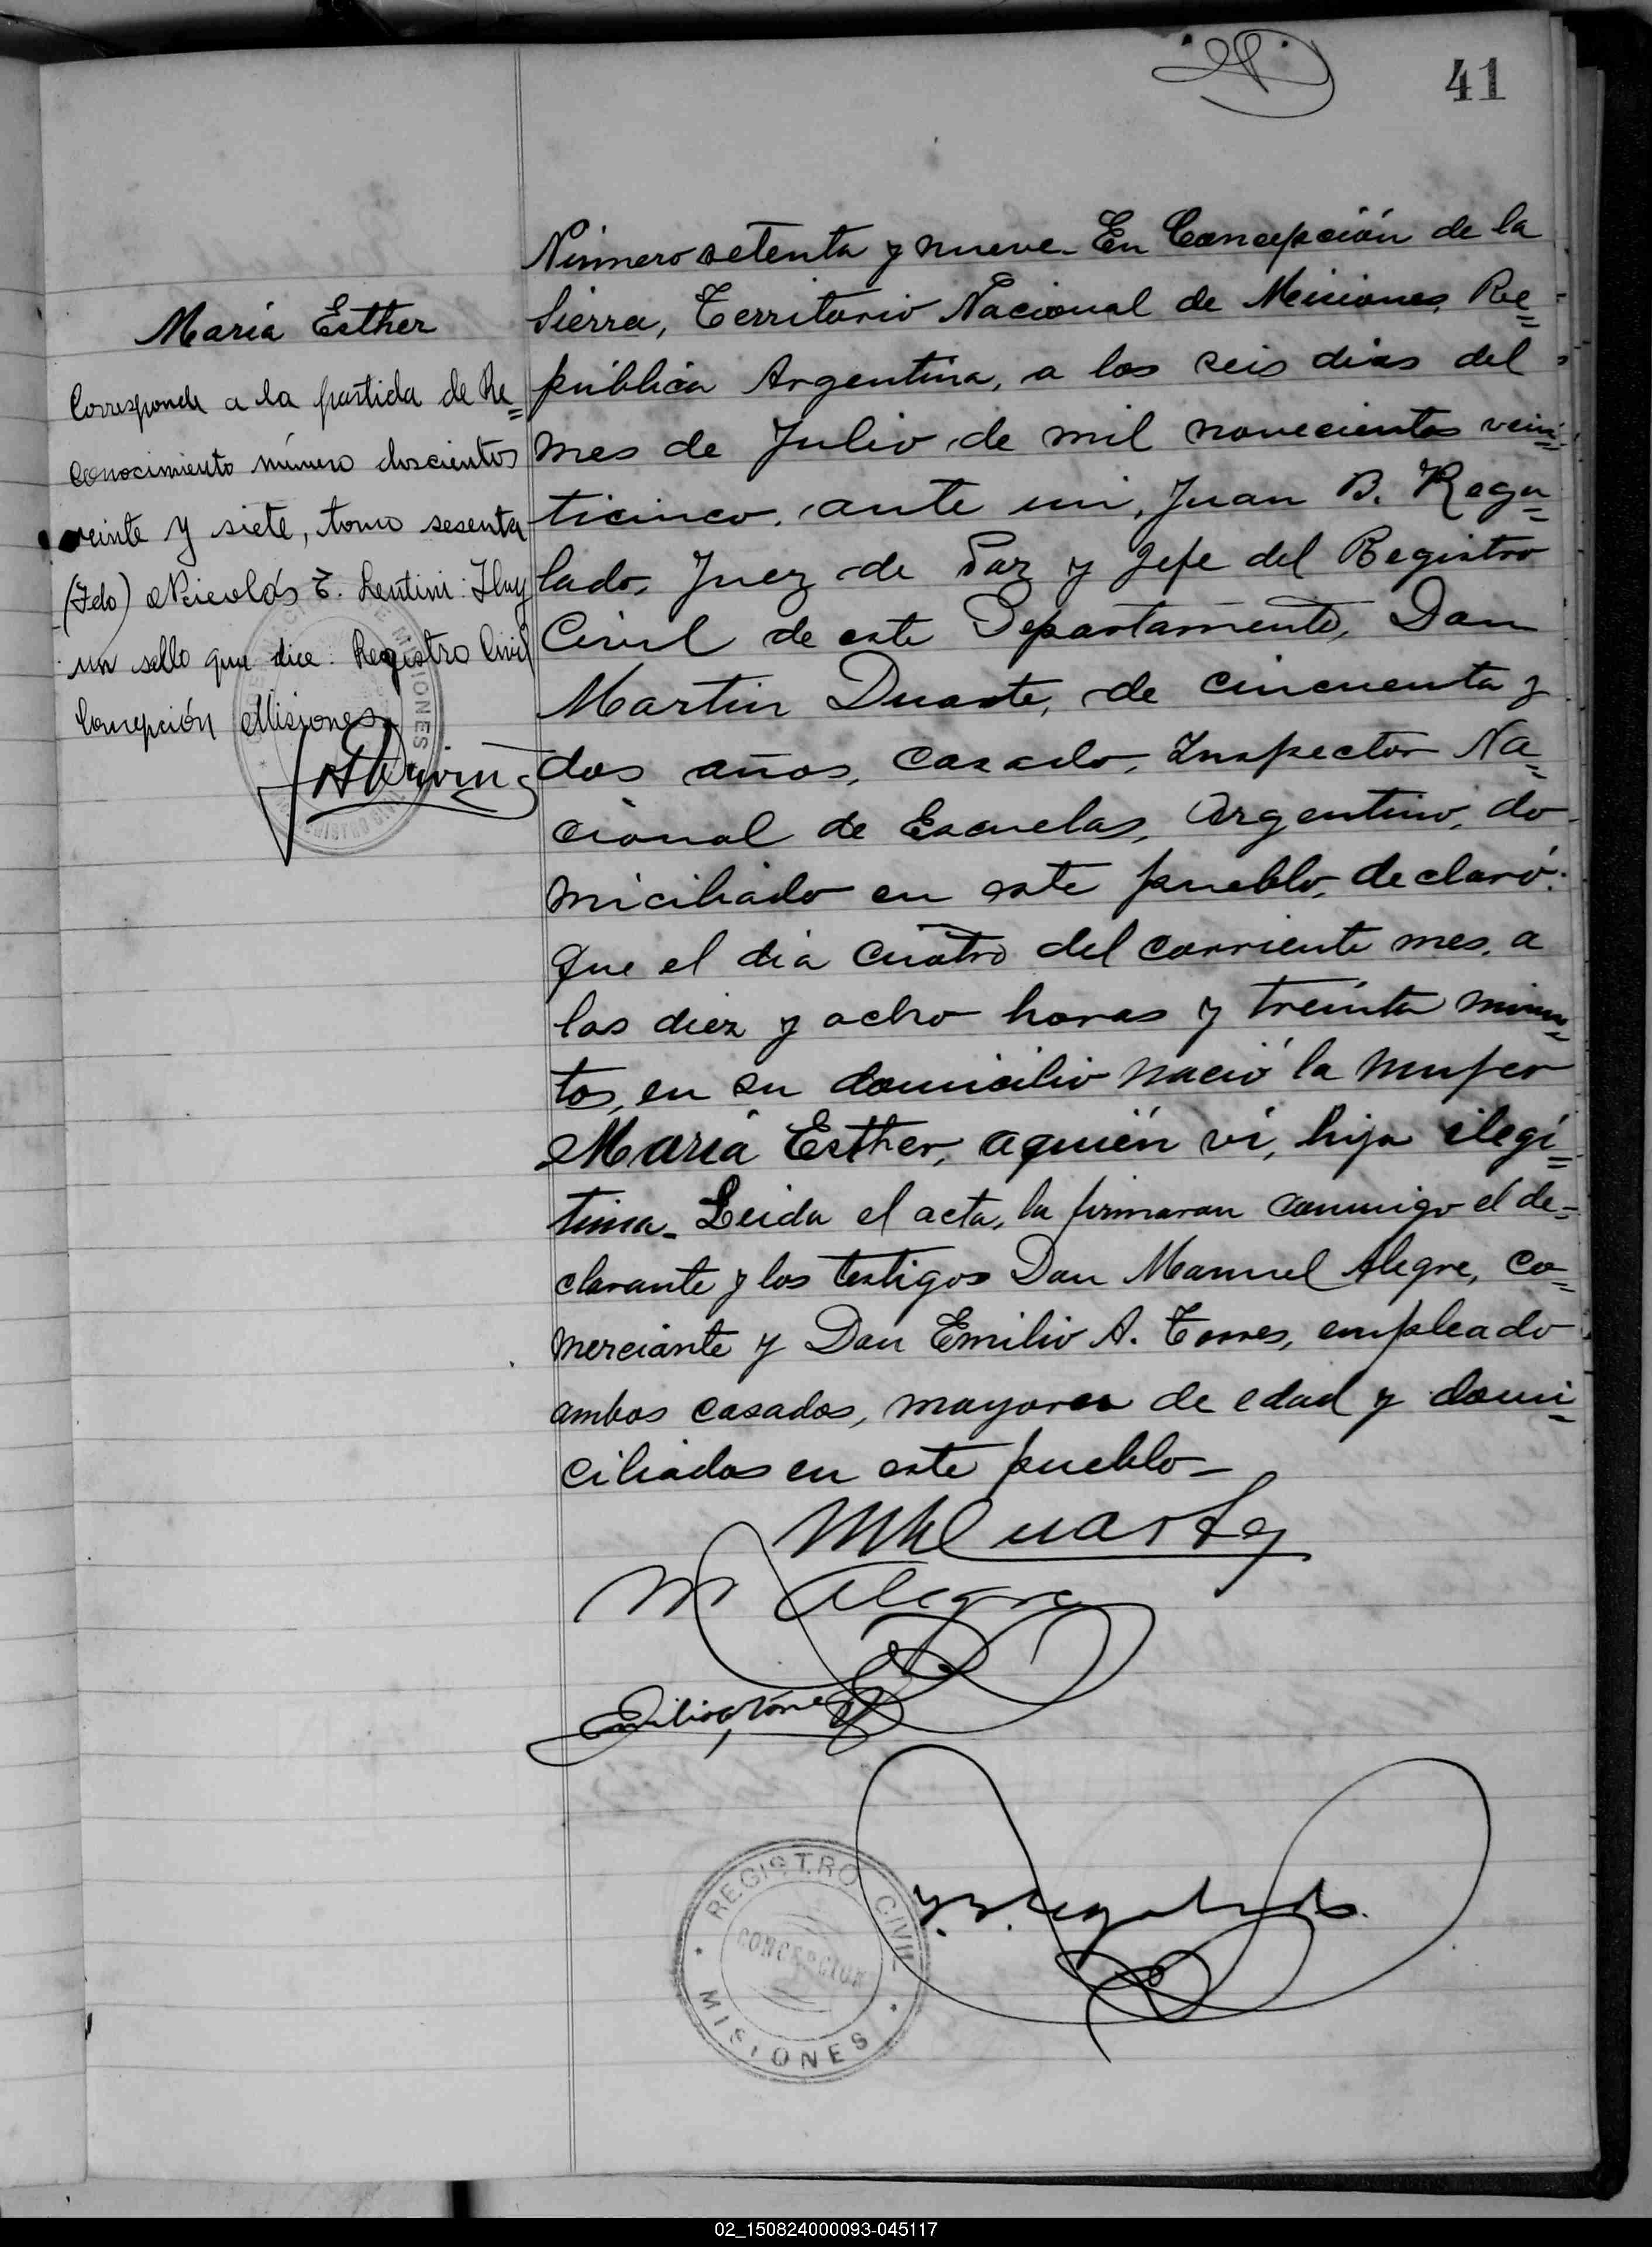 41
María Esther
Corresponde a la partida de Re=
conocimiento número doscientos
veinte y siete, tomo sesenta
(Fdo) Nicolás E. Lentini: Hay
un sello que dice: Registro Civil
Concepción Misiones
Número setenta y nueve. En Concepción de la
Sierra, Territorio Nacional de Misiones, Re=
pública Argentina, a los seis días del
mes de Julio de mil novecientos vein=
ticinco, ante mi, Juan B. Regu=
lado, Juez de Paz y Jefe del Registro
Civil de este Departamento, Don
Martin Duarte, de cincuenta y
dos años, casado, Inspector Na=
cional de Escuelas, Argentino, do-
miciliado en este pueblo, declaró:
Que el día cuatro del corriente mes, a
las diez y ocho horas y treinta minu=
tos, en su domicilio nació la mujer
María Esther, a quién ví, hija ilegí=
tima. Leida el acta, la firmaron conmigo el de=
clarante y los testigos Don Manuel Alegre, co=
merciante y Don Emilio A. Torres, empleado
ambos casados, mayores de edad y domi=
ciliados en este pueblo_
M Duarte
M Alegre
Emilio A Torres
REGISTRO CIVIL
CONCEPCION
MISIONES
02_150824000093-045117